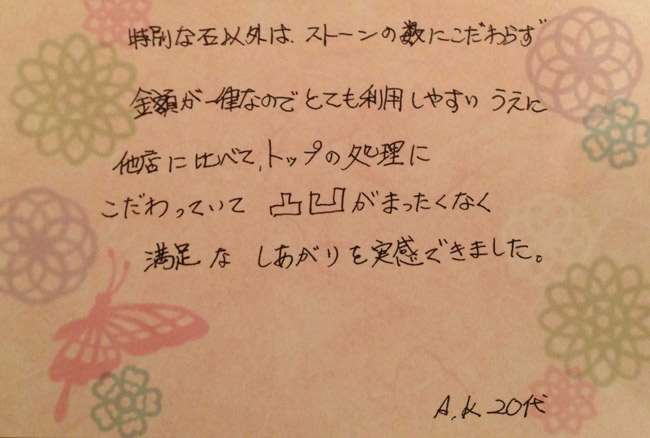 特別な石以外は、ストーンの数にこだわらず
金額が一律なのでとても利用しやすいうえに
他店に比べて、トップの処理に
こだわっていて 凸凹がまったくなく
満足な しあがりを実感できました。
A.K 20代